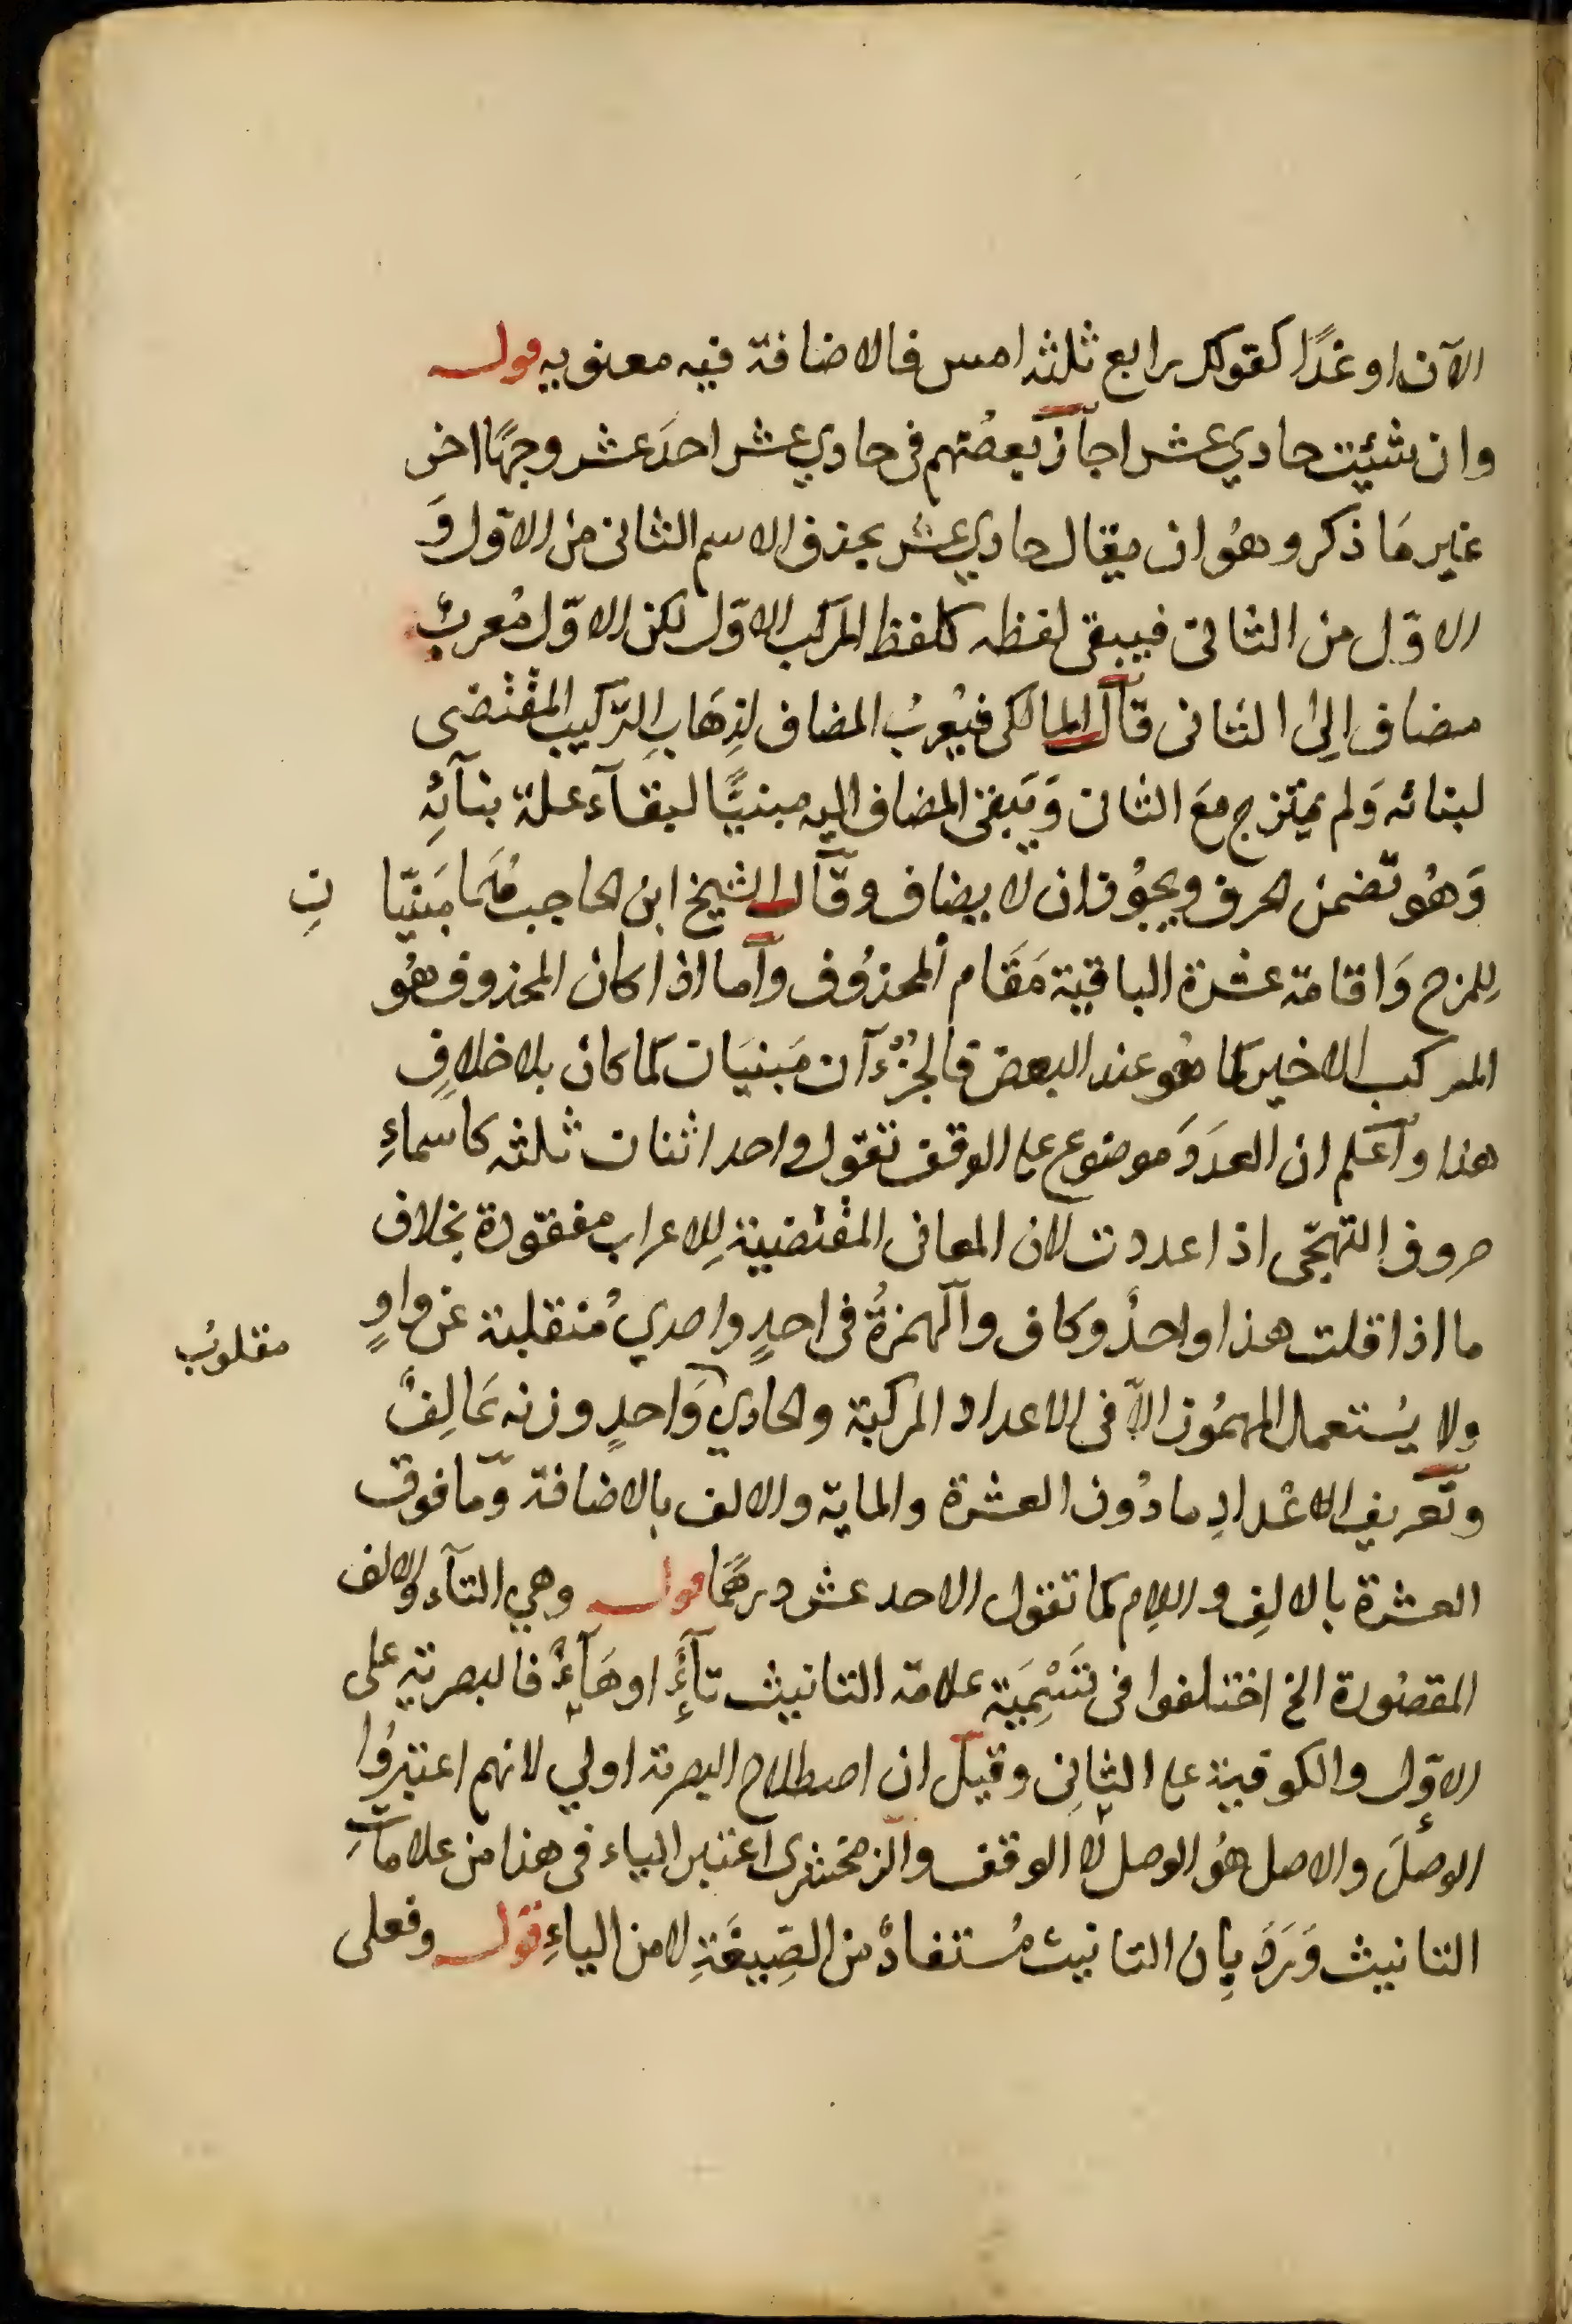 الآن او غدًا كقولك رابع ثلثة امس فالاضافة فيه معنويه قوله
وان شئيت حادي عشر اجاز بعضهم فى حادي عشر احدَ عشر وجهًا اخر
غير مَا ذكر وهُو ان يقال حادي عشر بحذف الاسم الثانى من الاوّل وَ
الاوّل من الثانى فيبقى لفظه كلفظ المركب الاوّل لكن الاوّل مُعربٌ
مضاف الِى الثانى قال المالكى فيُعربُ المضاف لِذِهَابِ التركيب المقْتضى
لبنائه وَلم يمتزج معَ الثانى وَيَبقى المضاف اليه مبنيًّا لبقآء علة بنآئِهِ
وَهُو تضمنُ الحرف ويجُوز ان لا يضاف وقال الشيخ ابن الحاجب هُمَا مَبنيّا نِ
لِلمزج وَاقامة عشرة الباقية مَقَام المحذُوف وآما اذا كان المحذوف هُو
المركب الاخير كما هُو عند البعض فالجُزْءآن مَبنيَان كما كان بلا خلافٍ
هذا واعلم ان العدَدَ موضوع على الوقف تقول واحد اثنان ثلثه كاسماءِ
حروف التهجّى اذا عددت لان المعانى المقْتضيية لِلاعراب مفقودة بخلاف
ما اذا قلت هذا واحدٌ وكاف والهمزةُ فى احدٍ واحدي مُنقلبة عن واوٍ
ولا يُستعمل المهمُوز الاّ فى الاعداد المركبة والحادي وَاحدٍ وزنه عَالِفٌ
مقلوبُ
وتعريف الاعْدادِ مادُون العشرة والماية والالف بالاضافة ومّا فوق
العشرة بالالِف واللام كما تقول الاحد عشر درهمًا قوله وهي التآء والالف
المقصُورة الخ اختلفوا فى تَسْمِيَة علامة التانيث تآءً او هَآءً فالبصريّه على
الاوّل والكوفية على الثانِى وقيل ان اصطلاح البصرية اولي لانهم اعتبرُوا
الوصلَ والاصل هُو الوصل لا الوقف والزمخشرى اعتبر الياء فى هذا من علاماتِ
التانيث وَرَدّ بِان التانيث مُستفادٌ من الصِيغَةِ لا من الياءِ قوله وفعلى